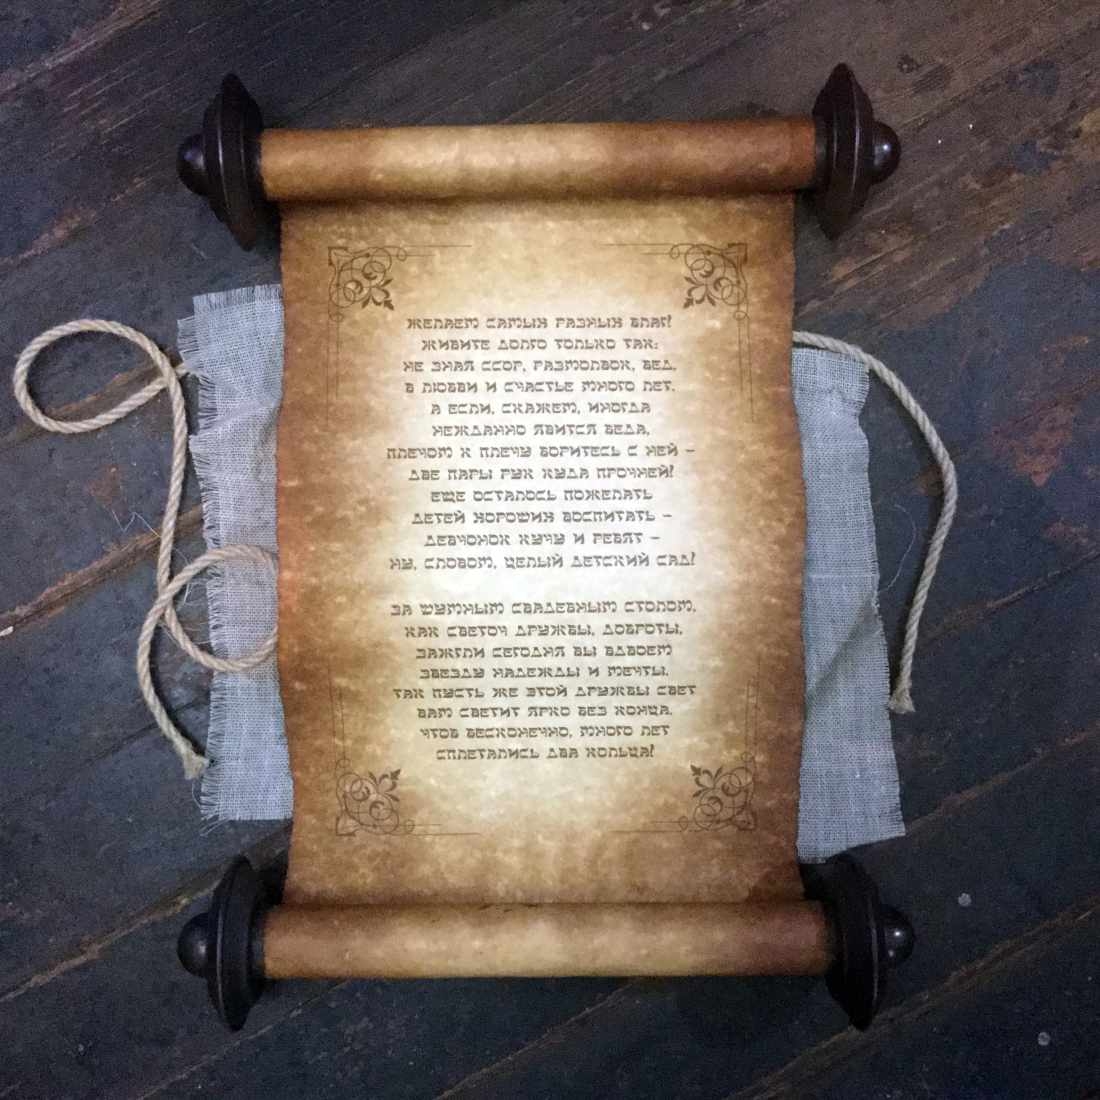 ЖЕЛАЕМ САМЫХ РАЗНЫХ БЛАГ!
ЖИВИТЕ ДОЛГО ТОЛЬКО ТАК:
НЕ ЗНАЯ ССОР, РАЗМОЛВОК, БЕД,
В ЛЮБВИ И СЧАСТЬЕ МНОГО ЛЕТ.
А ЕСЛИ, СКАЖЕМ, ИНОГДА
НЕЖДАННО ЯВИТСЯ БЕДА,
ПЛЕЧОМ К ПЛЕЧУ БОРИТЕСЬ С НЕЙ –
ДВЕ ПАРЫ РУК КУДА ПРОЧНЕЙ!
ЕЩЕ ОСТАЛОСЬ ПОЖЕЛАТЬ
ДЕТЕЙ ХОРОШИХ ВОСПИТАТЬ –
ДЕВЧОНОК КУЧУ И РЕБЯТ –
НУ, СЛОВОМ, ЦЕЛЫЙ ДЕТСКИЙ САД!
ЗА ШУМНЫМ СВАДЕБНЫМ СТОЛОМ,
КАК СВЕТОЧ ДРУЖБЫ, ДОБРОТЫ,
ЗАЖГЛИ СЕГОДНЯ ВЫ ВДВОЕМ
ЗВЕЗДУ НАДЕЖДЫ И МЕЧТЫ.
ТАК ПУСТЬ ЖЕ ЭТОЙ ДРУЖБЫ СВЕТ
ВАМ СВЕТИТ ЯРКО БЕЗ КОНЦА.
ЧТОБ БЕСКОНЕЧНО, МНОГО ЛЕТ
СПЛЕТАЛИСЬ ДВА КОЛЬЦА!